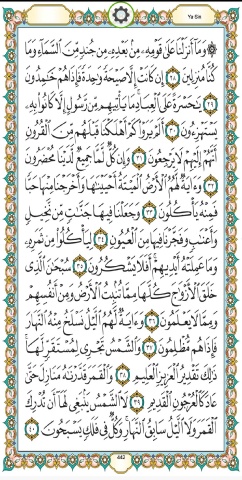 Ya Sin
۞ وَمَآ أَنزَلْنَا عَلَىٰ قَوْمِهِۦ مِنۢ بَعْدِهِۦ مِن جُندٍ مِّنَ ٱلسَّمَآءِ وَمَا
كُنَّا مُنزِلِينَ ٢٨ إِن كَانَتْ إِلَّا صَيْحَةً وَٰحِدَةً فَإِذَا هُمْ خَٰمِدُونَ
٢٩ يَٰحَسْرَةً عَلَى ٱلْعِبَادِ مَا يَأْتِيهِم مِّن رَّسُولٍ إِلَّا كَانُوا۟ بِهِۦ
يَسْتَهْزِءُونَ ٣٠ أَلَمْ يَرَوْا۟ كَمْ أَهْلَكْنَا قَبْلَهُم مِّنَ ٱلْقُرُونِ
أَنَّهُمْ إِلَيْهِمْ لَا يَرْجِعُونَ ٣١ وَإِن كُلٌّ لَّمَّا جَمِيعٌ لَّدَيْنَا مُحْضَرُونَ
٣٢ وَءَايَةٌ لَّهُمُ ٱلْأَرْضُ ٱلْمَيْتَةُ أَحْيَيْنَٰهَا وَأَخْرَجْنَا مِنْهَا حَبًّا
فَمِنْهُ يَأْكُلُونَ ٣٣ وَجَعَلْنَا فِيهَا جَنَّٰتٍ مِّن نَّخِيلٍ
وَأَعْنَٰبٍ وَفَجَّرْنَا فِيهَا مِنَ ٱلْعُيُونِ ٣٤ لِيَأْكُلُوا۟ مِن ثَمَرِهِۦ
وَمَا عَمِلَتْهُ أَيْدِيهِمْ أَفَلَا يَشْكُرُونَ ٣٥ سُبْحَٰنَ ٱلَّذِى
خَلَقَ ٱلْأَزْوَٰجَ كُلَّهَا مِمَّا تُنۢبِتُ ٱلْأَرْضُ وَمِنْ أَنفُسِهِمْ
وَمِمَّا لَا يَعْلَمُونَ ٣٦ وَءَايَةٌ لَّهُمُ ٱلَّيْلُ نَسْلَخُ مِنْهُ ٱلنَّهَارَ
فَإِذَا هُم مُّظْلِمُونَ ٣٧ وَٱلشَّمْسُ تَجْرِى لِمُسْتَقَرٍّ لَّهَا
ذَٰلِكَ تَقْدِيرُ ٱلْعَزِيزِ ٱلْعَلِيمِ ٣٨ وَٱلْقَمَرَ قَدَّرْنَٰهُ مَنَازِلَ حَتَّىٰ
عَادَ كَٱلْعُرْجُونِ ٱلْقَدِيمِ ٣٩ لَا ٱلشَّمْسُ يَنۢبَغِى لَهَآ أَن تُدْرِكَ
ٱلْقَمَرَ وَلَا ٱلَّيْلُ سَابِقُ ٱلنَّهَارِ وَكُلٌّ فِى فَلَكٍ يَسْبَحُونَ ٤٠
442